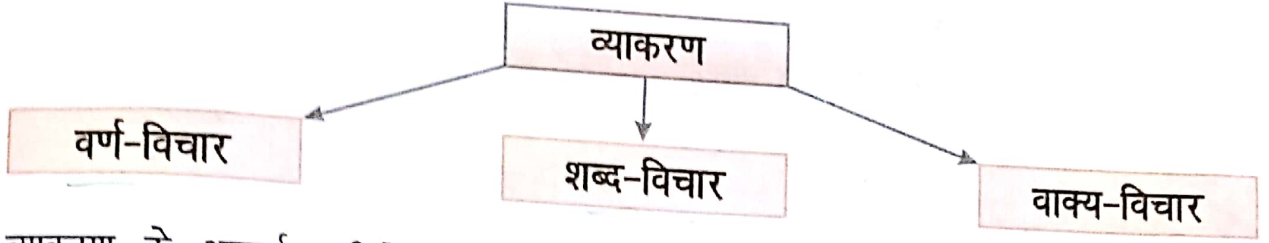 व्याकरण
वर्ण-विचार
शब्द-विचार
वाक्य-विचार